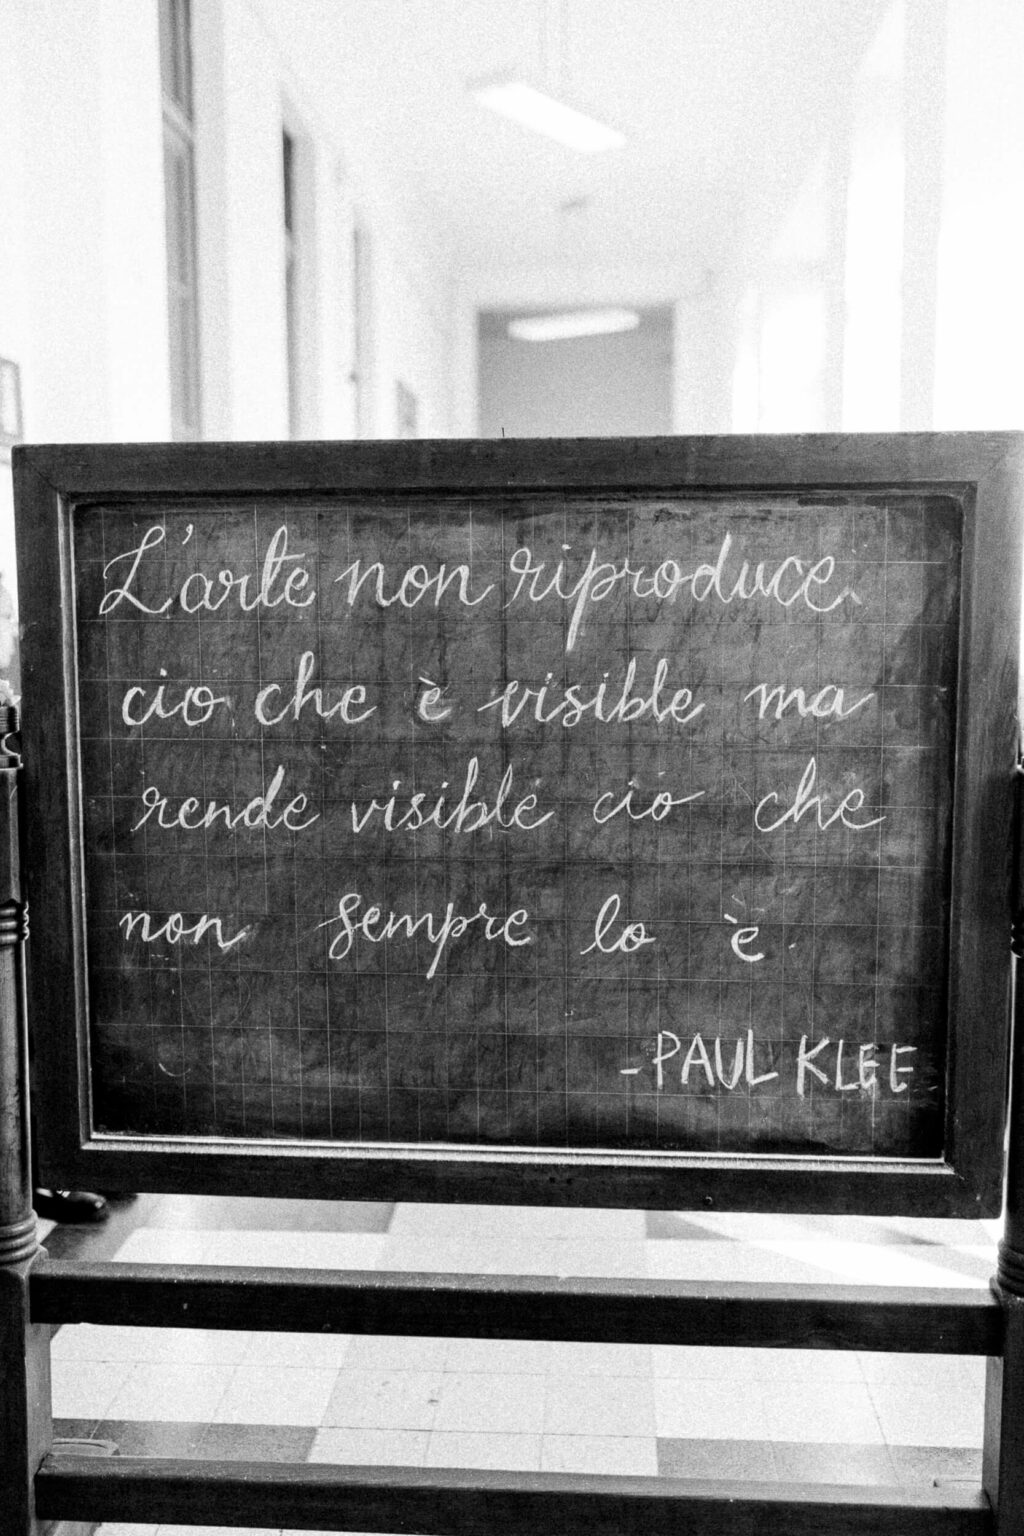 L'arte non riproduce
ciò che è visible ma
rende visible ciò che
non sempre lo è.
-PAUL KLEE